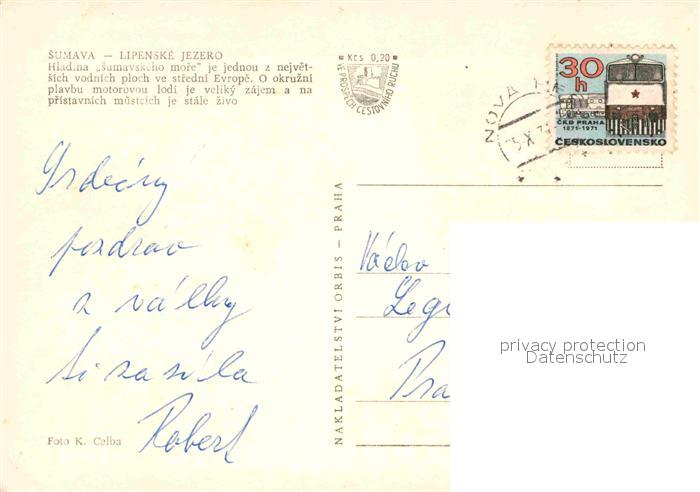 ŠUMAVA — LIPENSKÉ JEZERO
Hladina „šumavského moře" je jednou z největ-
ších vodních ploch ve střední Evropě. O okružní
plavbu motorovou lodí je veliký zájem a na
přístavních můstcích je stále živo
Kčs 0,20
VE PROSPĚCH CESTOVNÍHO RUCHU
NOVA
30
h
ČKD PRAHA
1871-1971
ČESKOSLOVENSKO
Srdečný
pozdrav
z války
Ti zasílá
Robert
Foto K. Celba
NAKLADATELSTVÍ ORBIS — PRAHA
Václav
Legi
Pra
privacy protection
Datenschutz